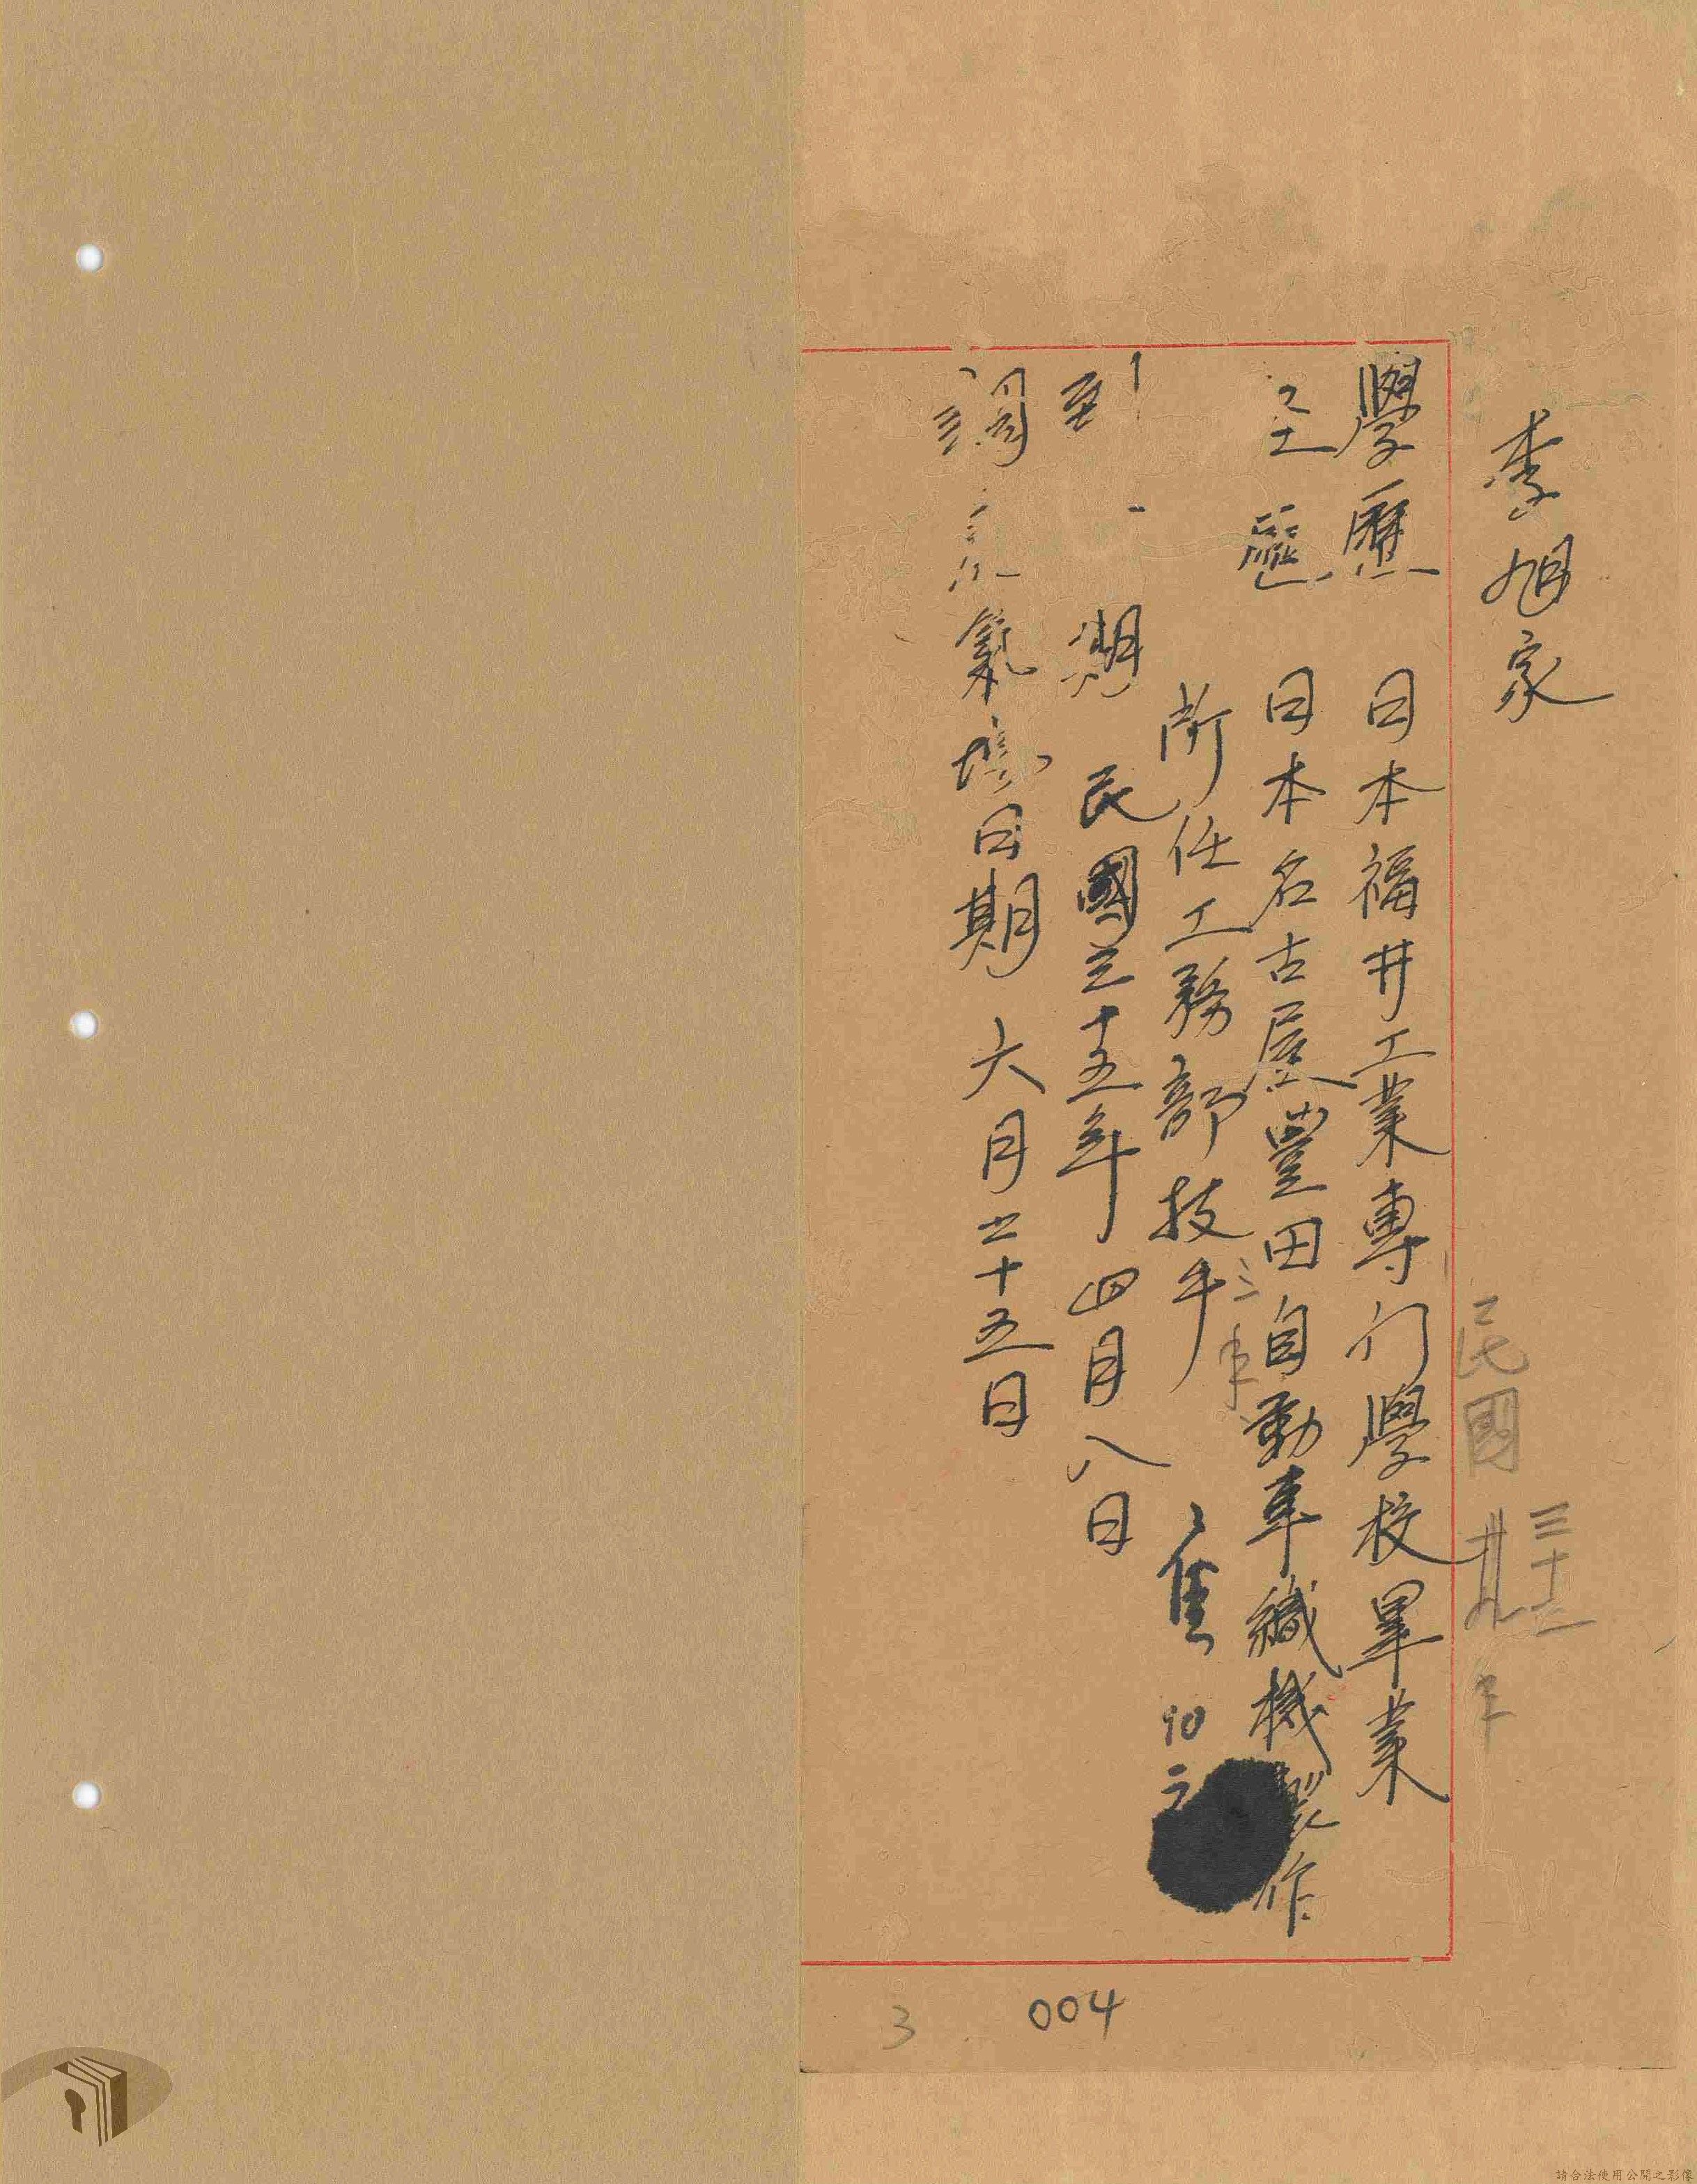 李旭家
民國 三十二 年
學歷 日本福井工業專门學校畢業
經歷 日本名古屋豐田自動車織機製作
所任工務部技手
三年
90元
到 期 民國三十五年四月八日
調 氣場日期 六月二十五日
004
3
請合法使用公開之影像